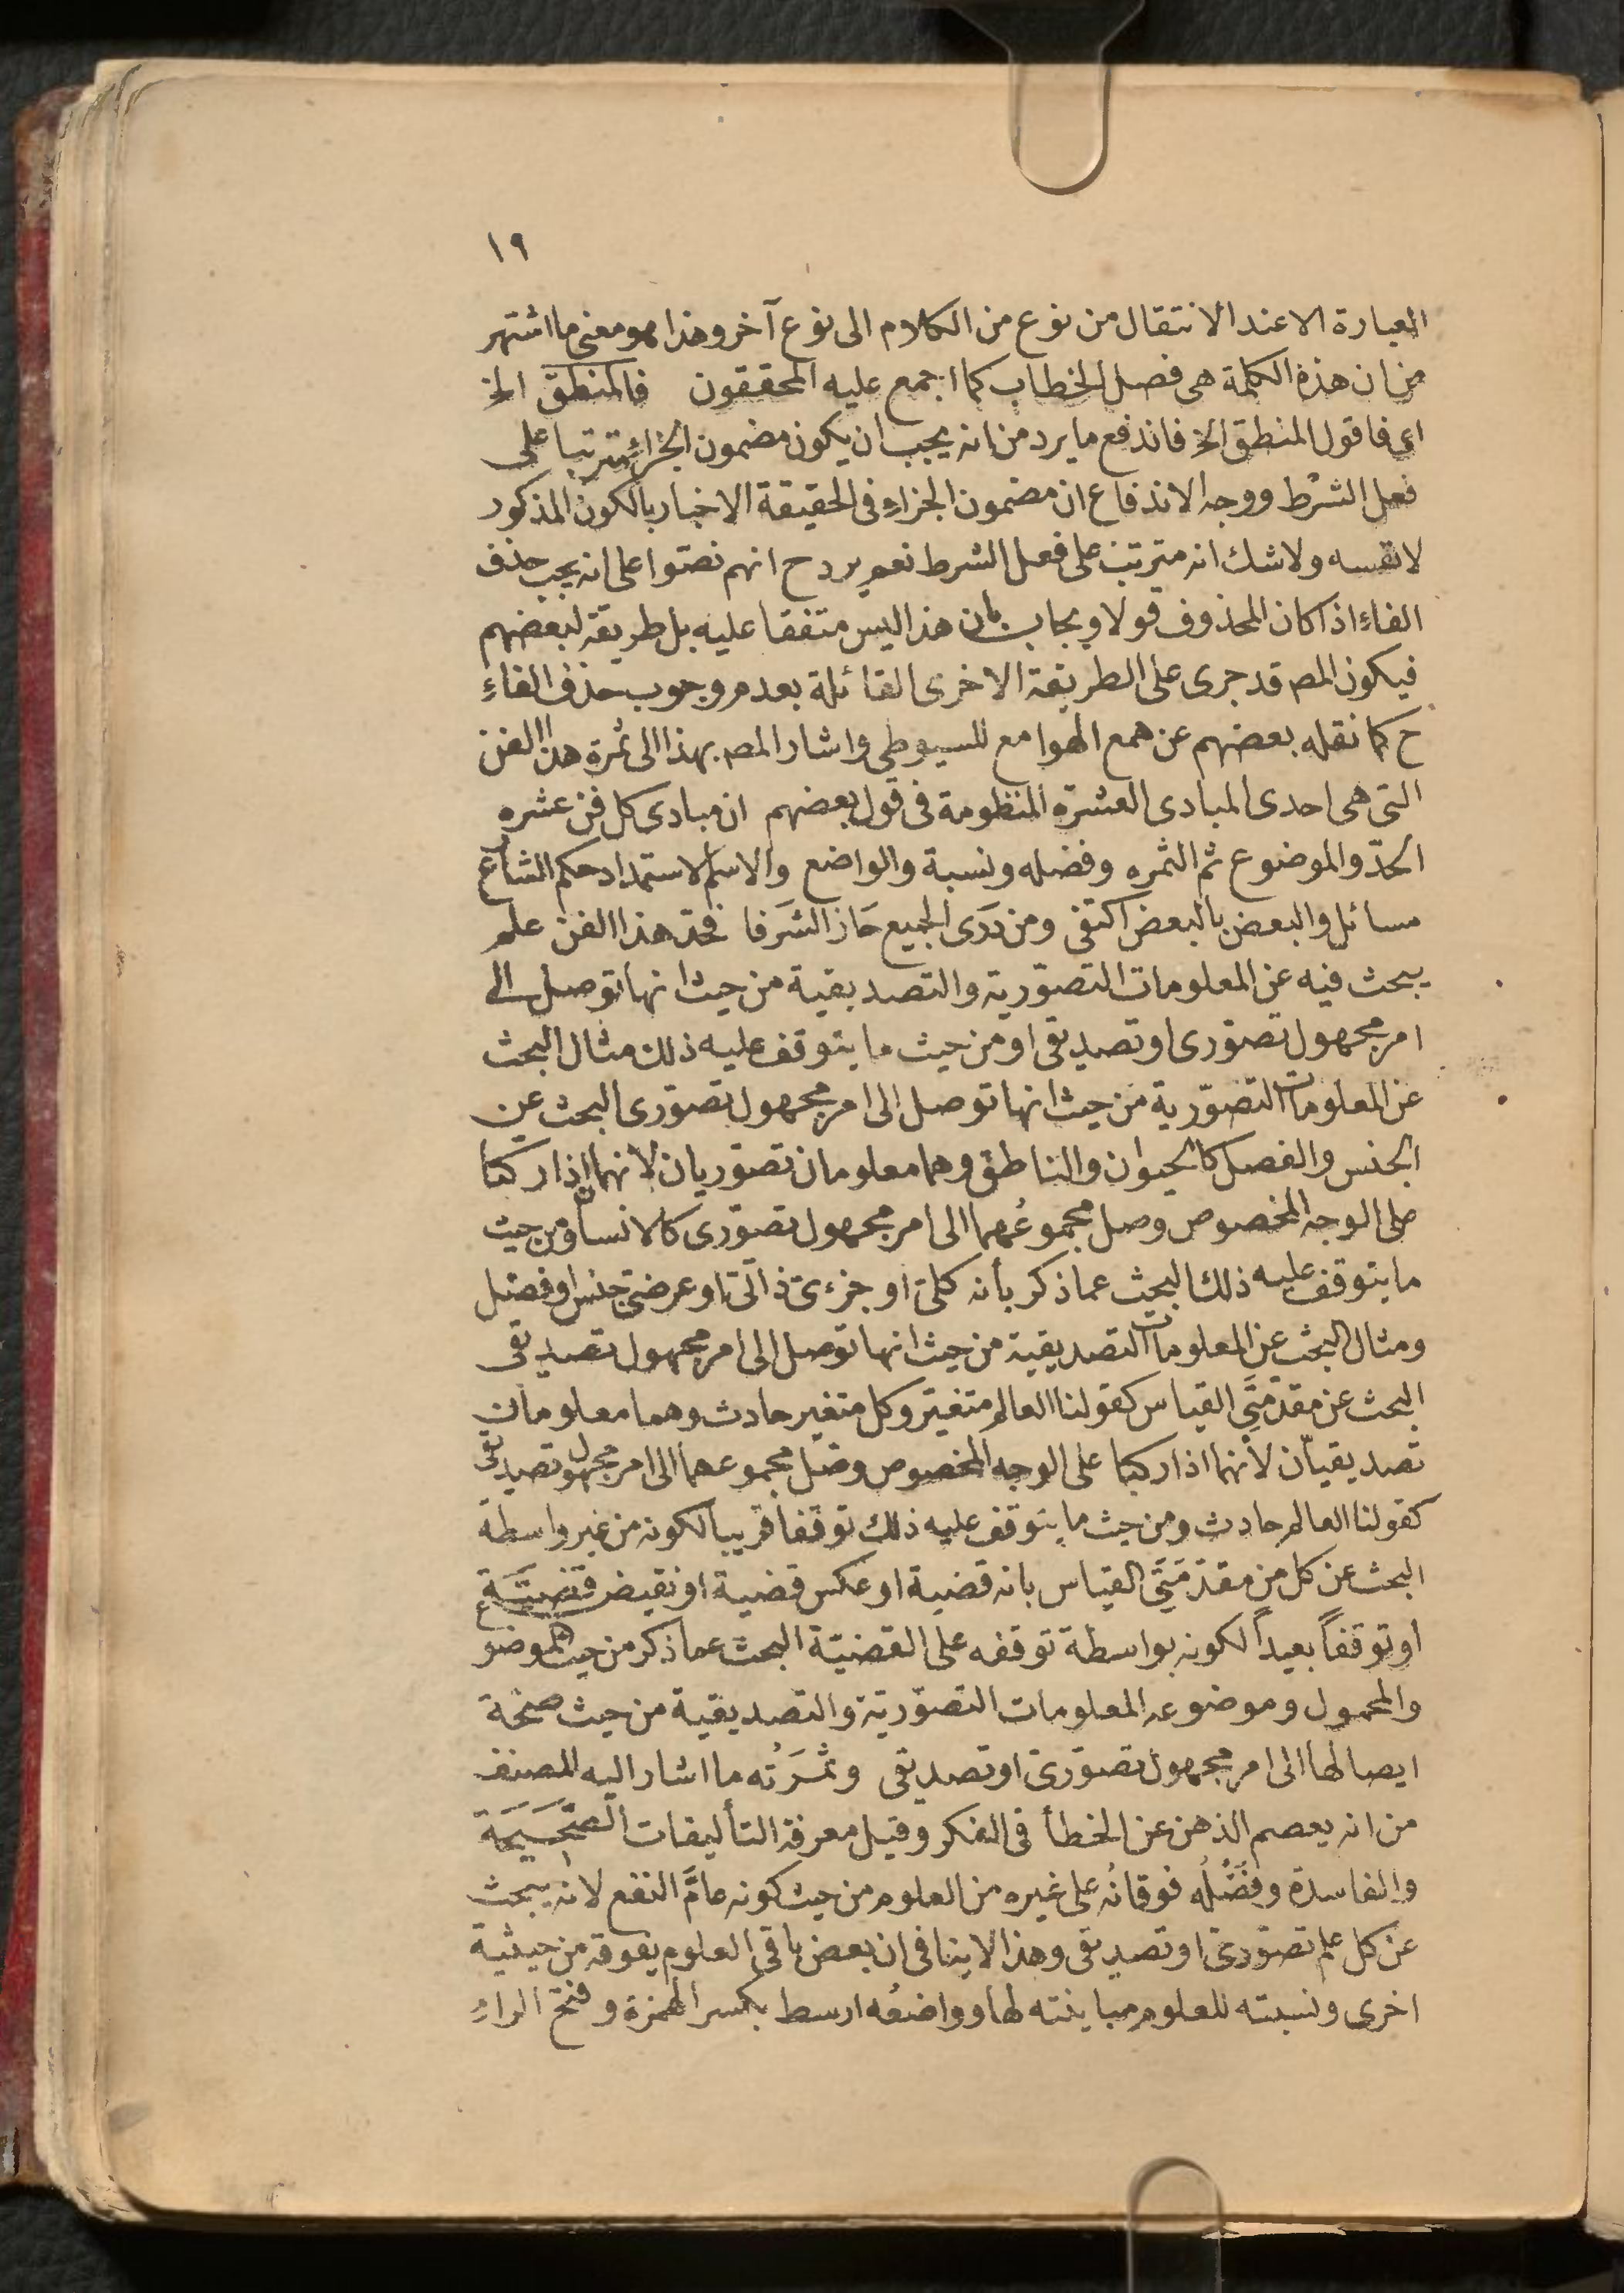 ١٩
العبارة الا عند الانتقال من نوع من الكلام الى نوع آخر وهذا هو معنى ما اشتهر
من ان هذه الكلمة هى فصل الخطاب كما اجمع عليه المحققون فالمنطق الخ
اى فاقول المنطق الخ فاندفع ما يرد من انه يجب ان يكون مضمون الجزاء مترتبا على
فعل الشرط ووجه الاندفاع ان مضمون الجزاء فى الحقيقة الاخبار بالكون المذكور
لا نفسه ولا شك انه مترتب على فعل الشرط نعم يرد ح انهم نصّوا على انه يجب حذف
الفاء اذا كان المحذوف قولا ويجاب بان هذا ليس متفقا عليه بل طريقة لبعضهم
فيكون المصـ قد جرى على الطريقة الاخرى القائلة بعدم وجوب حذف الفاء
ح كما نقله بعضهم عن همع الهوامع للسيوطى واشار المصـ بهذا الى ثمرة هذا الفن
التى هى احدى المبادى العشرة المنظومة فى قول بعضهم ان مبادى كل فن عشره
الحدّ والموضوع ثم الثمره وفضله ونسبة والواضع والاسم الاستمداد حكم الشارع
مسائل والبعض بالبعض اكتفى ومن دَرَى الجميع حَاز الشَرَفا فحدّ هذا الفن علم
يبحث فيه عن المعلومات التصوّرية والتصديقية من حيث انها توصل الى
امر مجهول تصوّرى او تصديقى او من حيث ما يتوقف عليه ذلك مثال البحث
عن المعلومات التصوّرية من حيث انها توصل الى امر مجهول تصوّرى البحث عن
الجنس والفصل كالحيوان والناطق وهما معلومان تصوّريان لانهما اذا ركبا
على الوجه المخصوص وصل مجموعُهما الى امر مجهول تصوّرى كالانسان ومن حيث
ما يتوقف عليه ذلك البحث عما ذكر بأنه كلىّ او جزءىّ ذاتىّ او عرضىّ جنس او فصل
ومثال البحث عن المعلومات التصديقية من حيث انها توصل الى امر مجهول تصديقى
البحث عن مقدّمتَىِ القياس كقولنا العالم متغيّر وكل متغير حادث وهما معلومان
تصديقيان لأنهما اذا ركبا على الوجه المخصوص وصّل مجموعهما الى امر مجهول تصديقى
كقولنا العالم حادث ومن حيث ما يتوقف عليه ذلك توقفا قريبا لكونه من غير واسطة
البحث عن كل من مقدّمتَىِ القياس بانه قضية او عكس قضية او نقيض قضيّة
او توقفاً بعيداً لكونه بواسطة توقفه على القضيّة البحث عما ذكر من حيث الموضوع
والمحمول وموضوعه المعلومات التصوّريّة والتصديقية من حيث صحّة
ايصالها الى امر مجهول تصوّرىّ او تصديقى وثمَرَتُه ما اشار اليه المصنف
من انه يعصم الذهن عن الخطأ فى الفكر وقيل معرفة التأليفات الصّحيحة
والفاسدة وفَضْلُه فوقانُه على غيره من العلوم من حيث كونه عامَّ النفع لانه يبحث
عن كل علم تصوّرىّ او تصديقى وهذا لا ينافى ان بعض باقى العلوم يفوقه من حيثية
اخرى ونسبته للعلوم مباينته لها وواضعُه ارسط بكسر الهمزة وفتح الراء